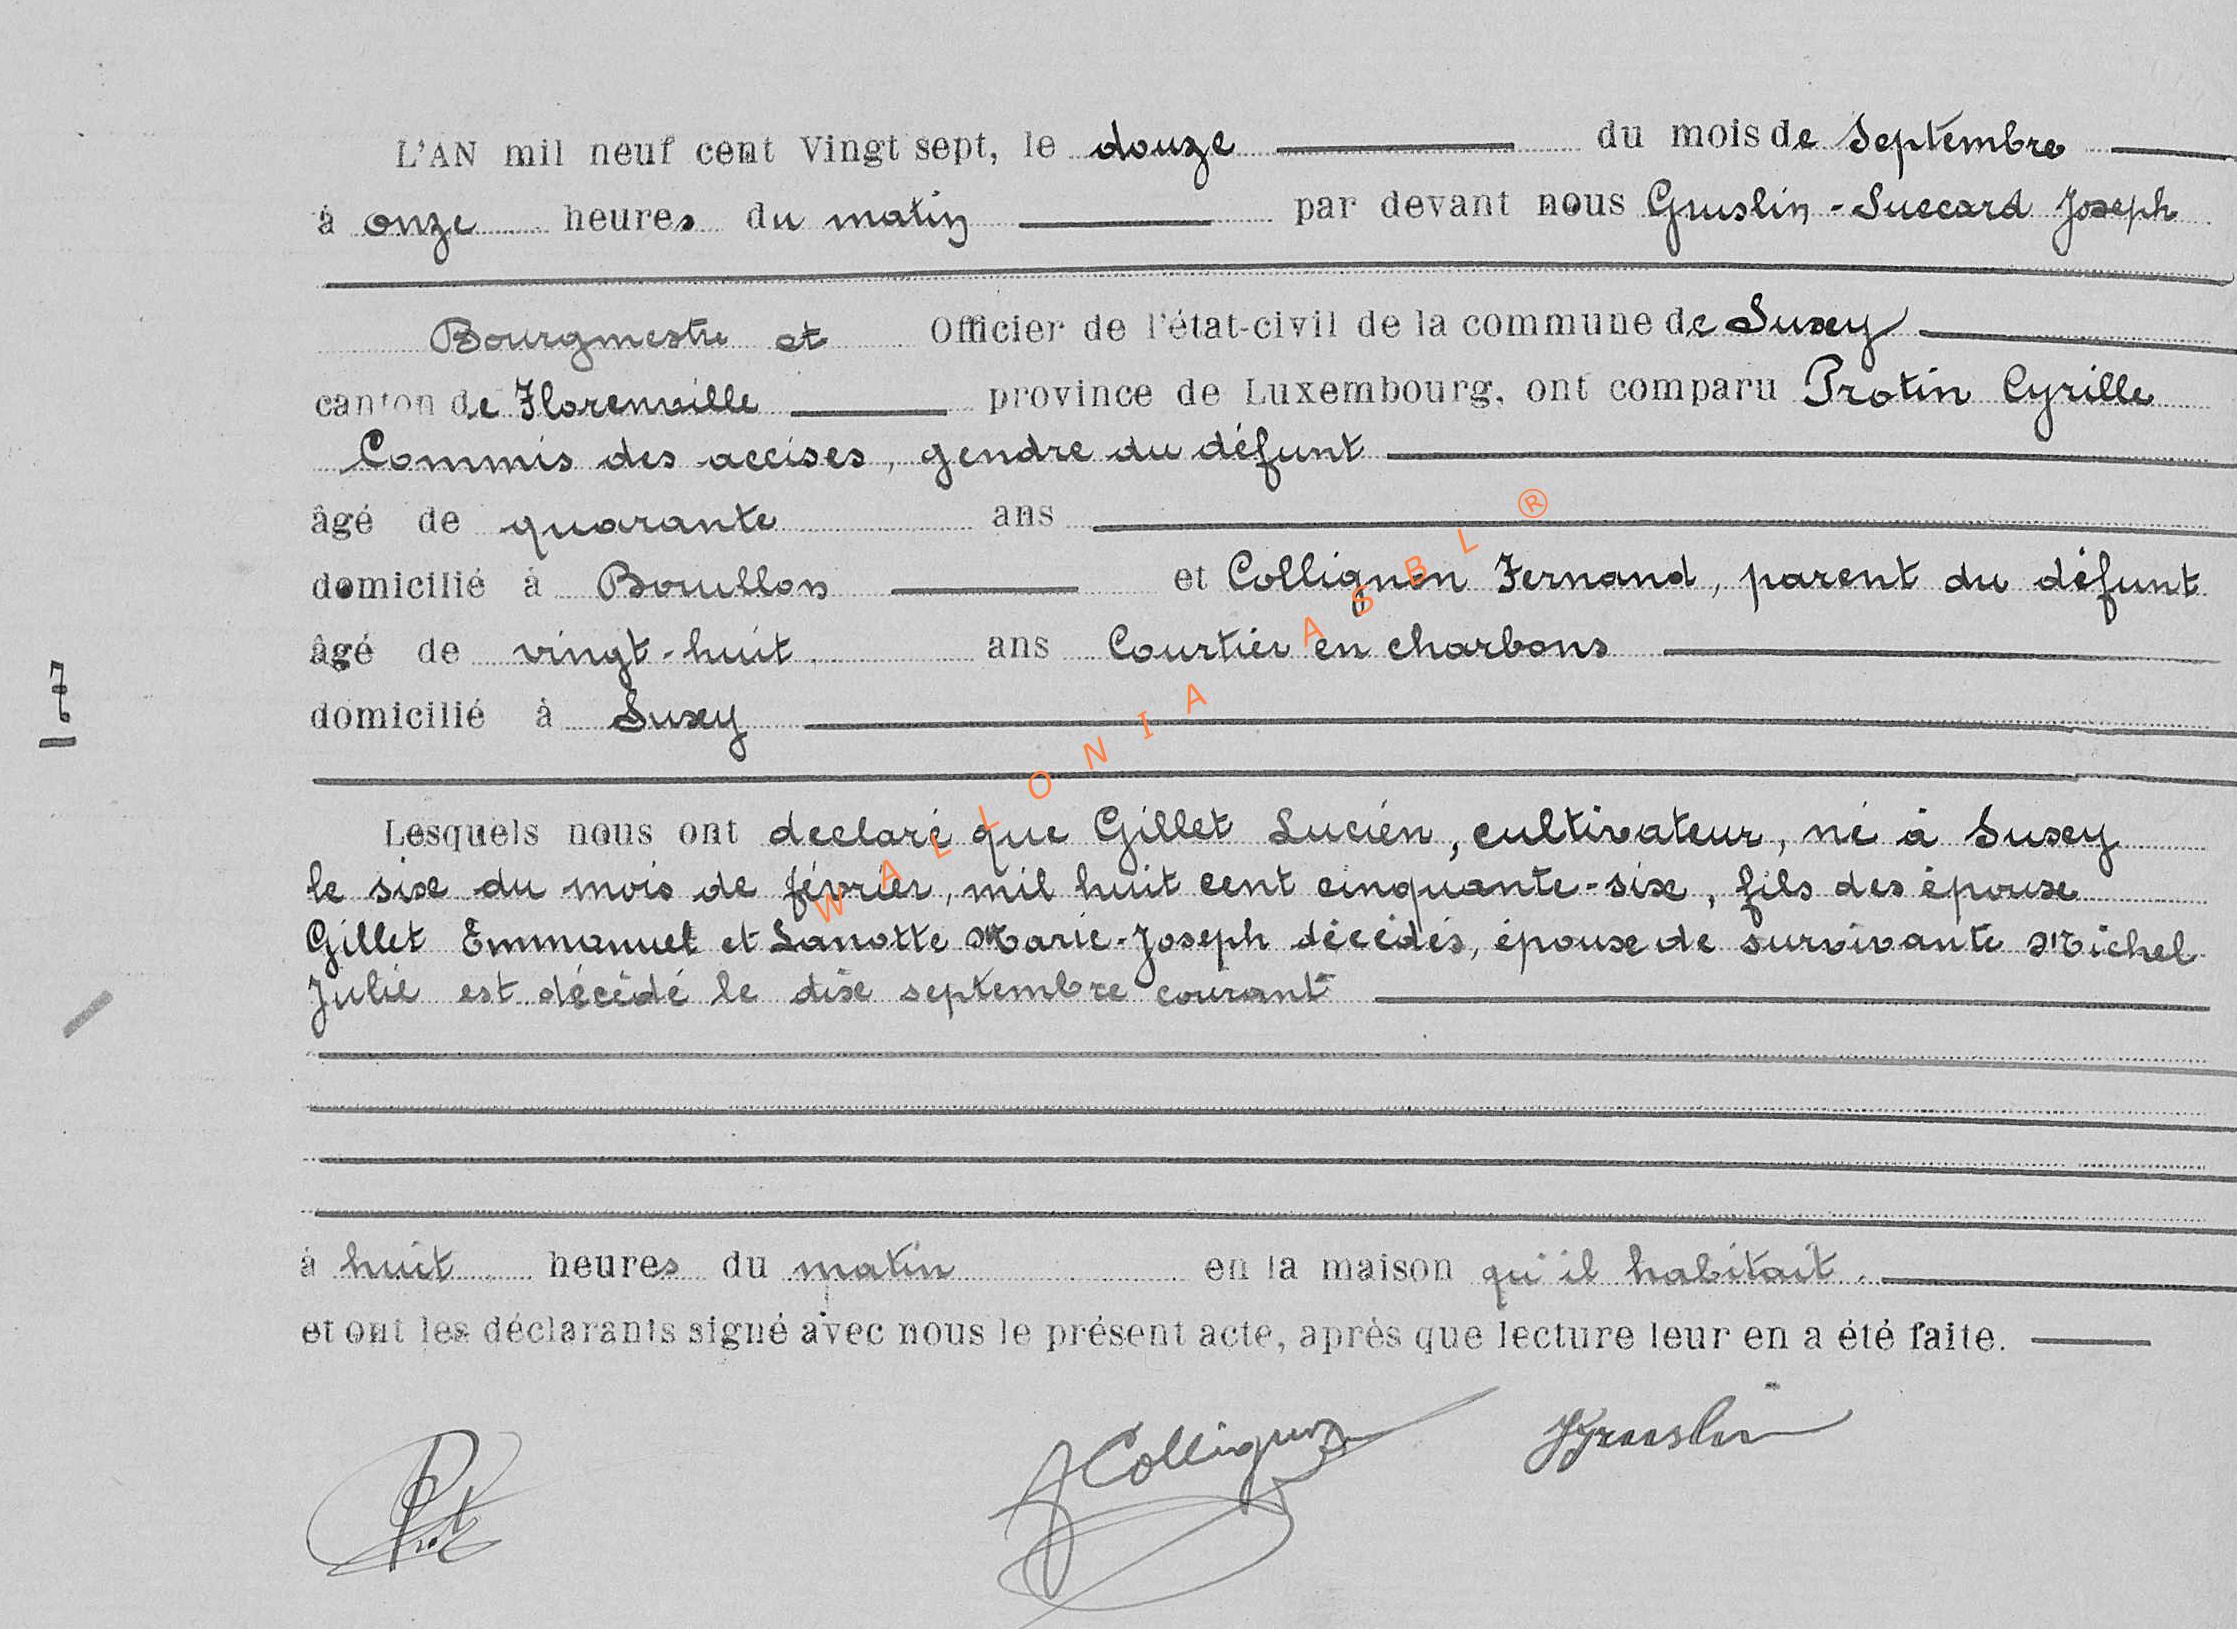 L'AN mil neuf cent Vingt sept, le douze du mois de Septembre
à onze heures du matin par devant nous Gruslin - Succard Joseph
Bourgmestre et Officier de l'état-civil de la commune de Suxey
canton de Florenville province de Luxembourg, ont comparu Protin Cyrille
Commis des accises, gendre du défunt
âgé de quarante ans
domicilié à Bouillon et Collignon Fernand, parent du défunt
âgé de vingt-huit ans Courtier en charbons
domicilié à Suxy
7
Lesquels nous ont declaré que Gillet Lucien, cultivateur, né à Suxey
le six du mois de février, mil huit cent cinquante-six, fils des époux
Gillet Emmanuel et Lanotte Marie-Joseph décédés, époux de survivante Michel
Julie est décédé le dix septembre courant
à huit heures du matin en la maison qu'il habitait.
et ont les déclarants signé avec nous le présent acte, après que lecture leur en a été faite.
Prot
F Collignon
J Gruslin
WALLONIA ASBL ®